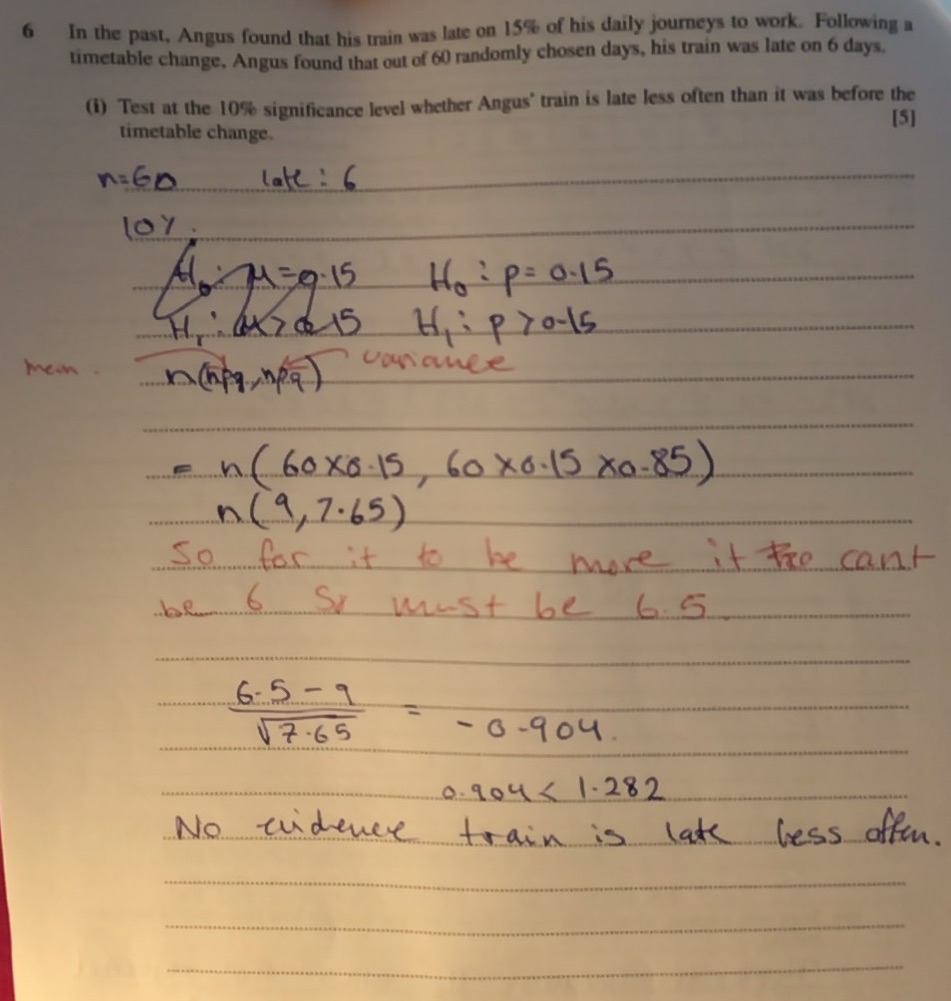 6 In the past, Angus found that his train was late on 15% of his daily journeys to work. Following a
timetable change, Angus found that out of 60 randomly chosen days, his train was late on 6 days.
(i) Test at the 10% significance level whether Angus' train is late less often than it was before the
timetable change. [5]
n=60 late : 6
10%.
H₀ : μ = 0.15 H₀ : p = 0.15
H₁ : μ > 0.15 H₁ : p > 0.15
mean. variance
n(npq, npq)
= n( 60 x 0.15 , 60 x 0.15 x 0.85)
n(9, 7.65)
so for it to be more it cant
be 6 So must be 6.5
6.5 - 9 / √7.65 = - 0.904.
0.904 < 1.282
No evidence train is late less often.